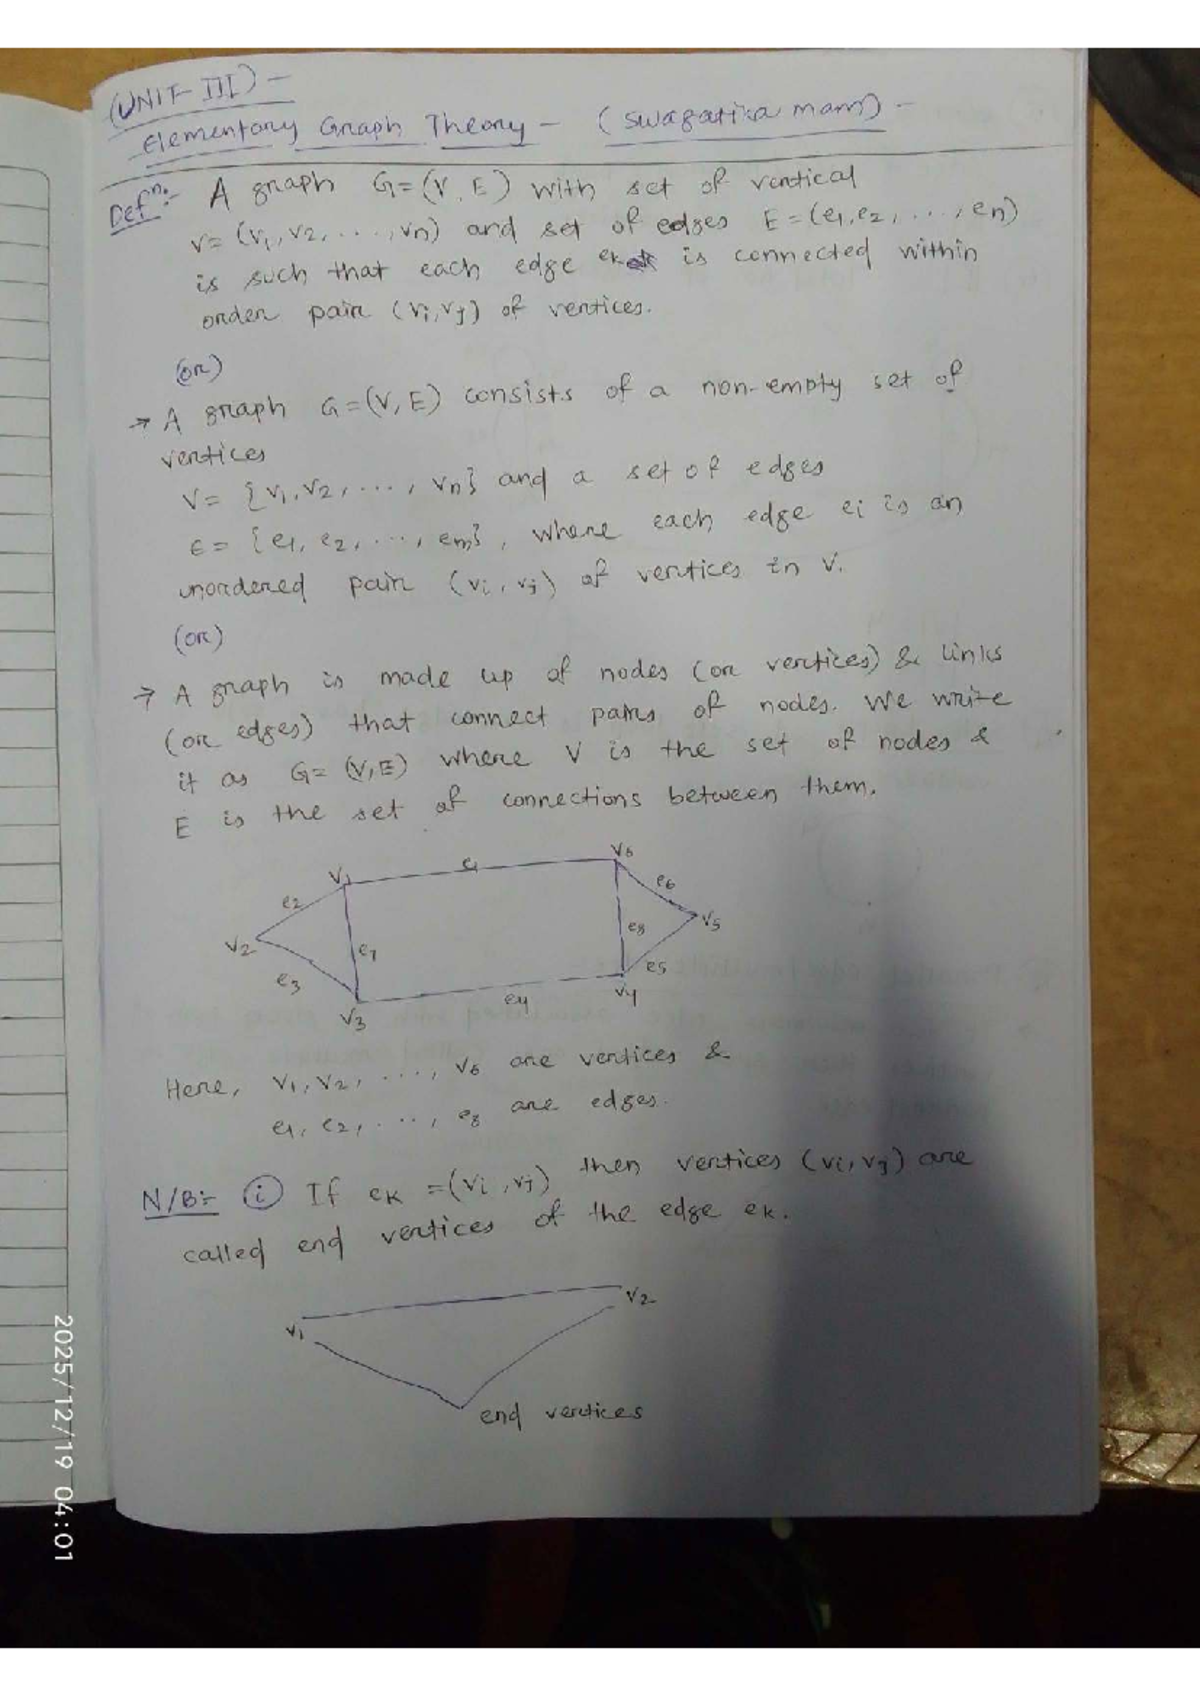 (UNIT-III) -
Elementary Graph Theory - (Swagatika mam) -
Defn:- A graph G=(V, E) with set of vertical
V= (v1, v2, ..., vn) and set of edges E=(e1, e2, ..., en)
is such that each edge ek is connected within
order pair (vi, vj) of vertices.
(or)
→ A graph G=(V, E) consists of a non-empty set of
vertices
V= {v1, v2, ..., vn} and a set of edges
E= {e1, e2, ..., em}, where each edge ei is an
unordered pair (vi, vj) of vertices in V.
(or)
→ A graph is made up of nodes (or vertices) & links
(or edges) that connect pairs of nodes. We write
it as G= (V, E) where V is the set of nodes &
E is the set of connections between them.
V1 e1 V6
e2 e6
V2 e7 e8 V5
e3 e5
V3 e4 V4
Here, V1, V2, ..., V6 are vertices &
e1, e2, ..., e8 are edges.
N/B:- (i) If ek =(vi, vj) then vertices (vi, vj) are
called end vertices of the edge ek.
V1 V2
end vertices
2025/12/19 04:01